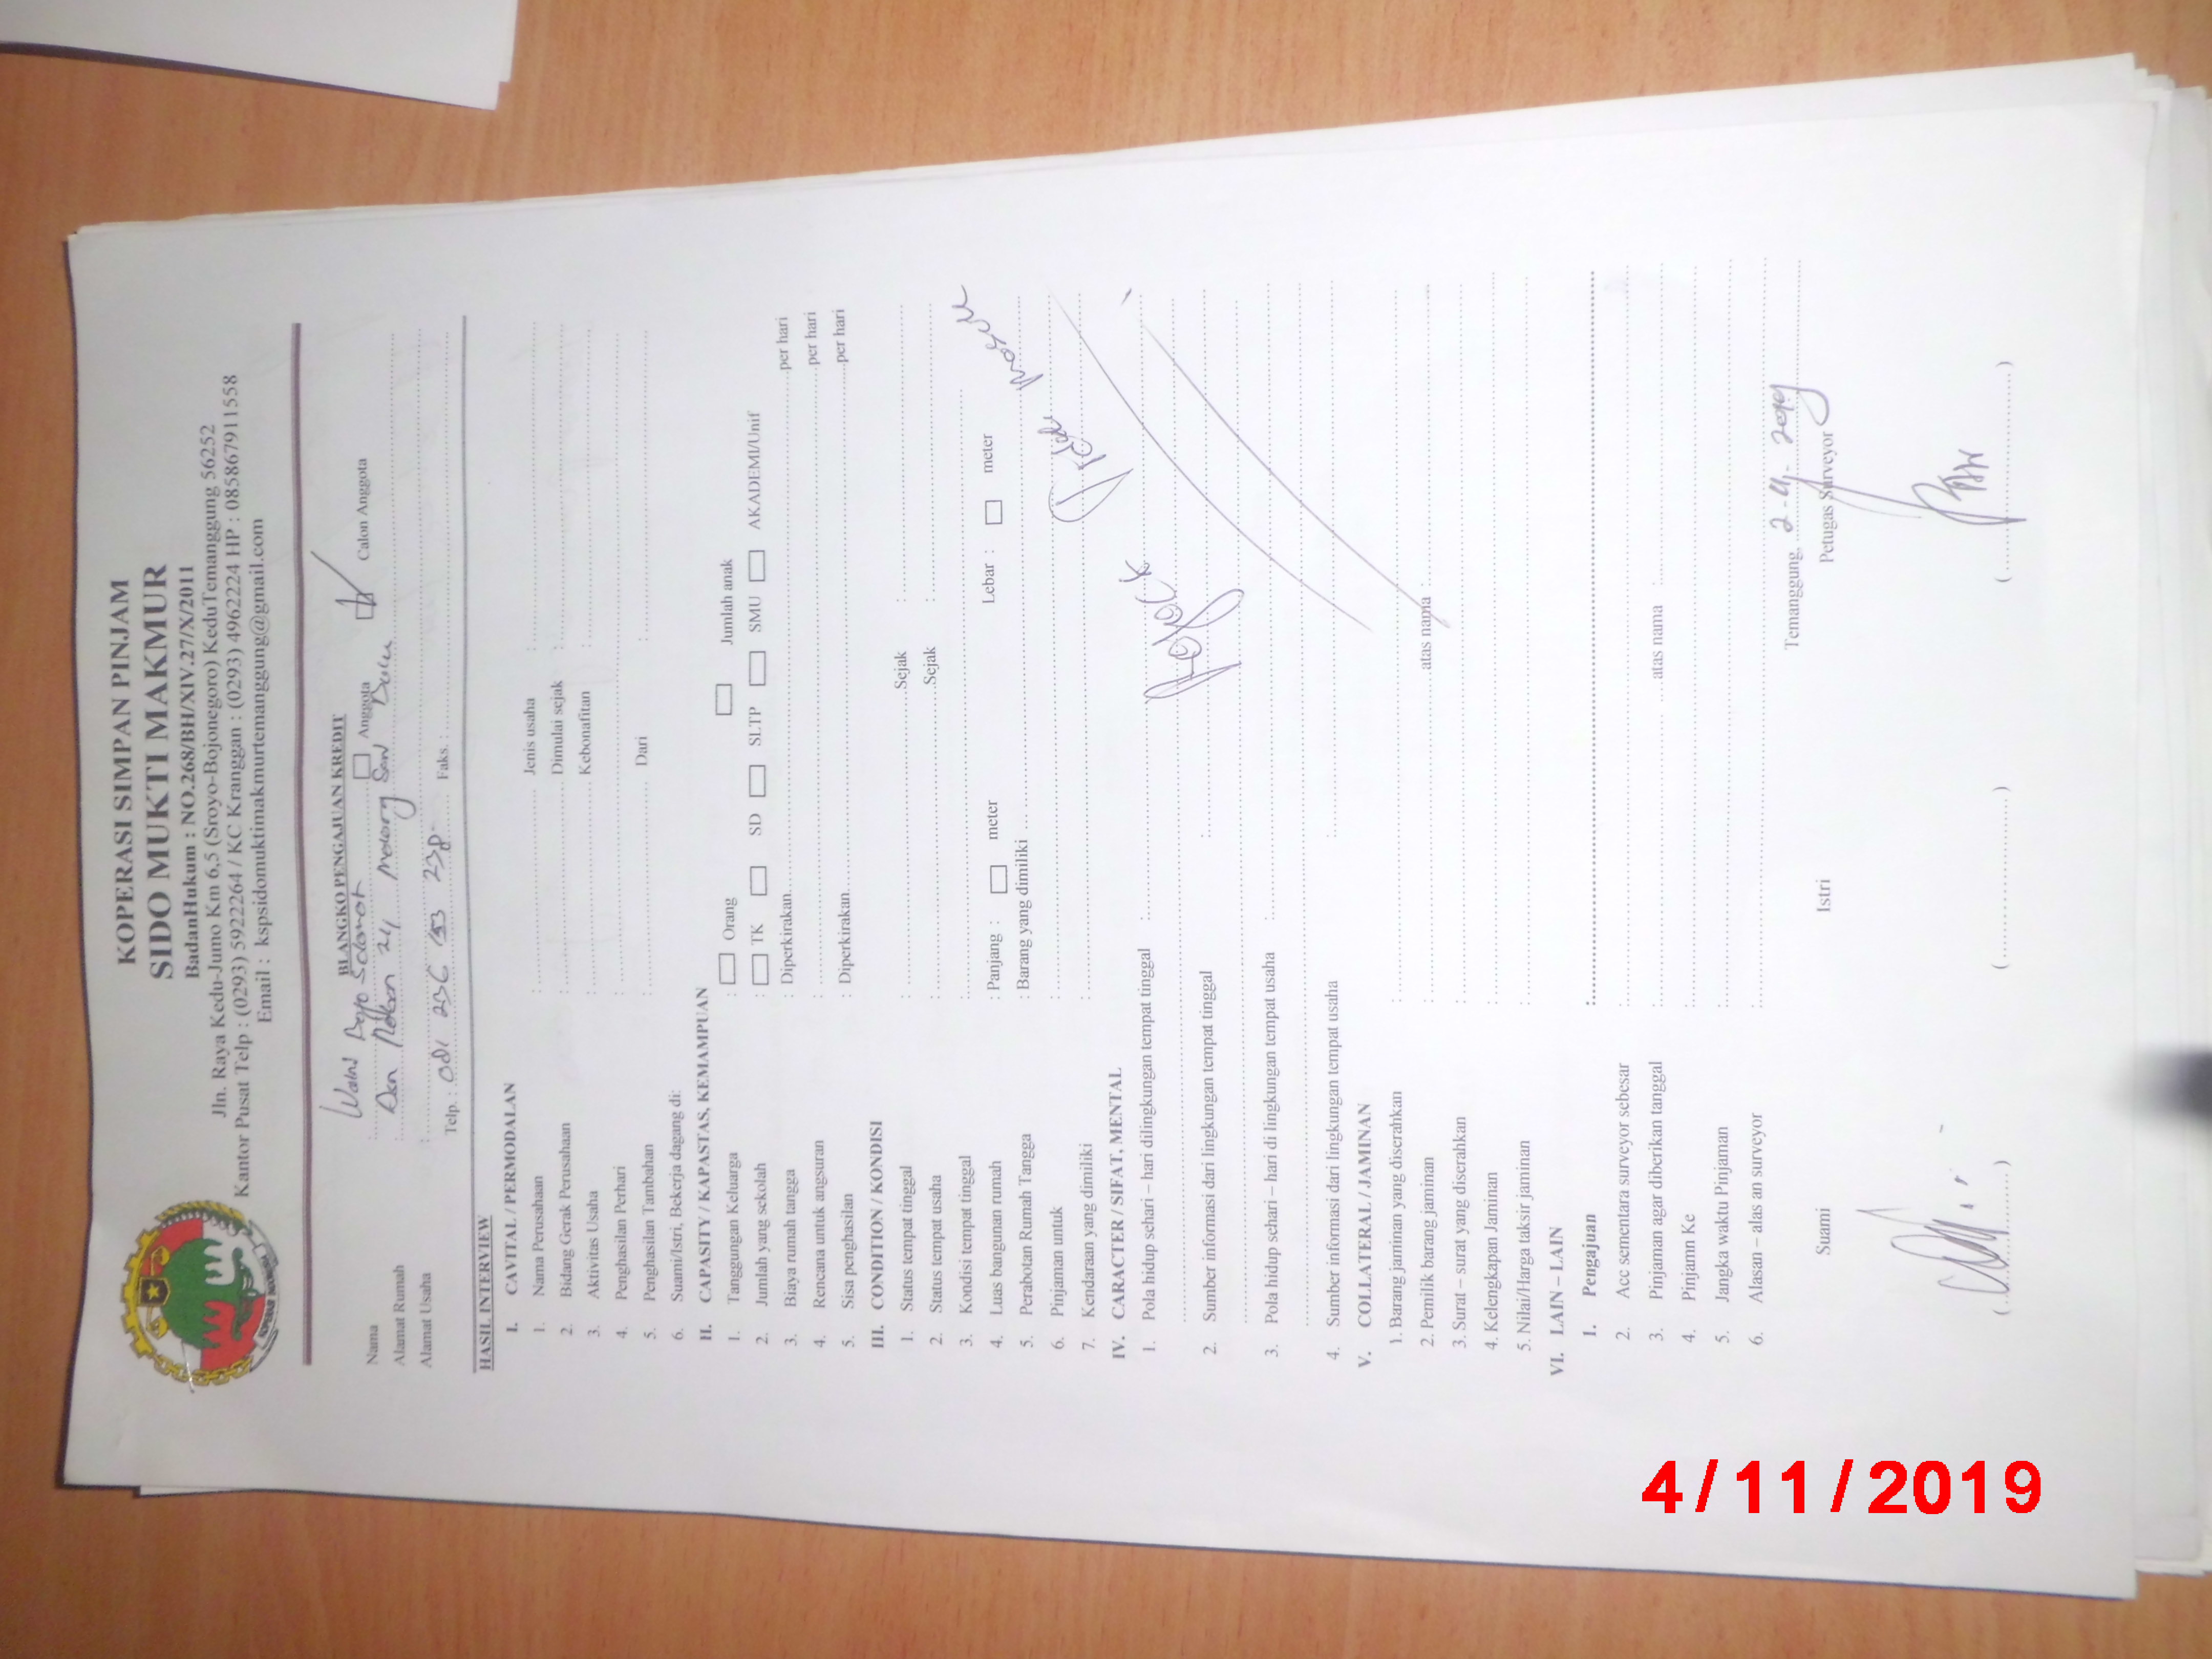 KOPERASI SIMPAN PINJAM
SIDO MUKTI MAKMUR
BadanHukum : NO.268/BH/XIV.27/X/2011
Jln. Raya Kedu-Jumo Km 6,5 (Sroyo-Bojonegoro) KeduTemanggung 56252
Kantor Pusat Telp : (0293) 5922264 / KC Kranggan : (0293) 4962224 HP : 085867911558
Email : kspsidomuktimakmurtemanggung@gmail.com
KOPERASI INDONESIA
BLANGKO PENGAJUAN KREDIT
Nama : Anggota Calon Anggota
Alamat Rumah :
Alamat Usaha :
Telp. : Faks. :
HASIL INTERVIEW
I. CAVITAL / PERMODALAN
1. Nama Perusahaan : Jenis usaha :
2. Bidang Gerak Perusahaan : Dimulai sejak :
3. Aktivitas Usaha : Kebonafitan :
4. Penghasilan Perhari :
5. Penghasilan Tambahan : Dari :
6. Suami/Istri, Bekerja dagang di:
II. CAPASITY / KAPASTAS, KEMAMPUAN
1. Tanggungan Keluarga : Orang Jumlah anak
2. Jumlah yang sekolah : TK SD SLTP SMU AKADEMI/Unif
3. Biaya rumah tangga : Diperkirakan per hari
4. Rencana untuk angsuran : per hari
5. Sisa penghasilan : Diperkirakan per hari
III. CONDITION / KONDISI
1. Status tempat tinggal : Sejak :
2. Status tempat usaha : Sejak :
3. Kondisi tempat tinggal :
4. Luas bangunan rumah : Panjang : meter Lebar : meter
5. Perabotan Rumah Tangga : Barang yang dimiliki
6. Pinjaman untuk :
7. Kendaraan yang dimiliki :
IV. CARACTER / SIFAT, MENTAL
1. Pola hidup sehari – hari dilingkungan tempat tinggal :
2. Sumber informasi dari lingkungan tempat tinggal :
3. Pola hidup sehari – hari di lingkungan tempat usaha :
4. Sumber informasi dari lingkungan tempat usaha :
V. COLLATERAL / JAMINAN
1. Barang jaminan yang diserahkan :
2. Pemilik barang jaminan : atas nama :
3. Surat – surat yang diserahkan :
4. Kelengkapan Jaminan :
5. Nilai/Harga taksir jaminan :
VI. LAIN – LAIN
1. Pengajuan :
2. Acc sementara surveyor sebesar :
3. Pinjaman agar diberikan tanggal : atas nama :
4. Pinjamn Ke :
5. Jangka waktu Pinjaman :
6. Alasan – alas an surveyor :
Temanggung,
Suami Istri Petugas Surveyor
4/11/2019